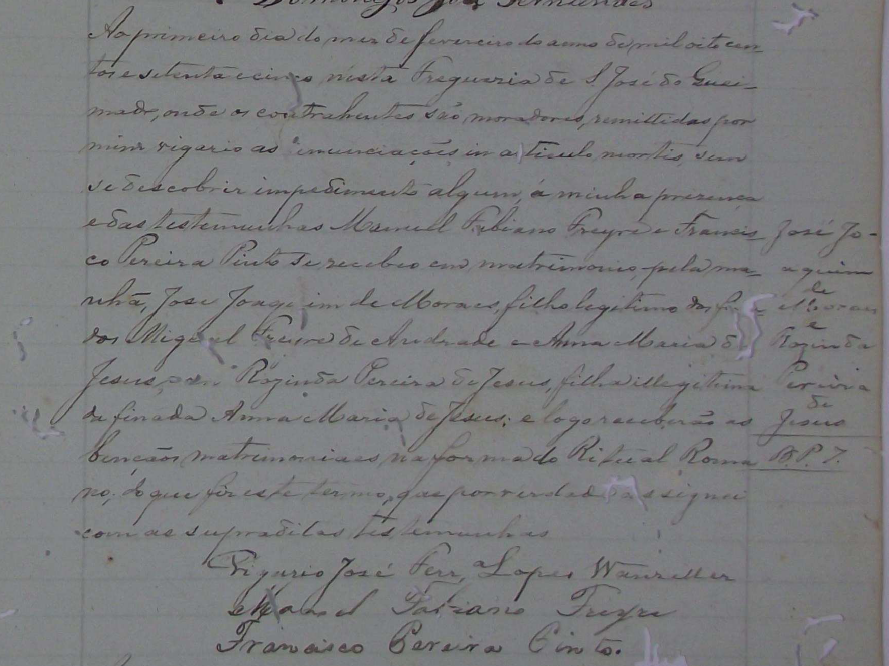 Domingos José Fernandes
Ao primeiro dia do mez de fevereiro do anno de mil oito cen-
tos e setenta e cinco nesta Freguezia de S. José do Quei-
mado, onde os contrahentes são moradores, remittidas por
mim vigario as enunciações in articulo mortis, sem
se descobrir impedimento algum, á minha presença
e das testemunhas Manuel Fabiano Freyre e Francis-
co Pereira Pinto se recebeo em matrimonio, pela ma-
nhã, José Joaquim de Moraes, filho legitimo dos fina-
dos Miguel Freire de Andrade e Anna Maria de
Jesus, com Rozinda Pereira de Jesus, filha illegitima
da finada Anna Maria de Jesus; e logo receberão as
bençãos matrimoniaes na forma do Ritual Roma-
no, do que fiz este termo, que por verdade assignei
com as supraditas testemunhas
Vigario José Ferr.ª Lopes Wanzeller
Manoel Fabiano Freyre
Francisco Pereira Pinto.
José Jo-
aquim
de
Moraes
e
Rozinda
Pereira
de
Jesus